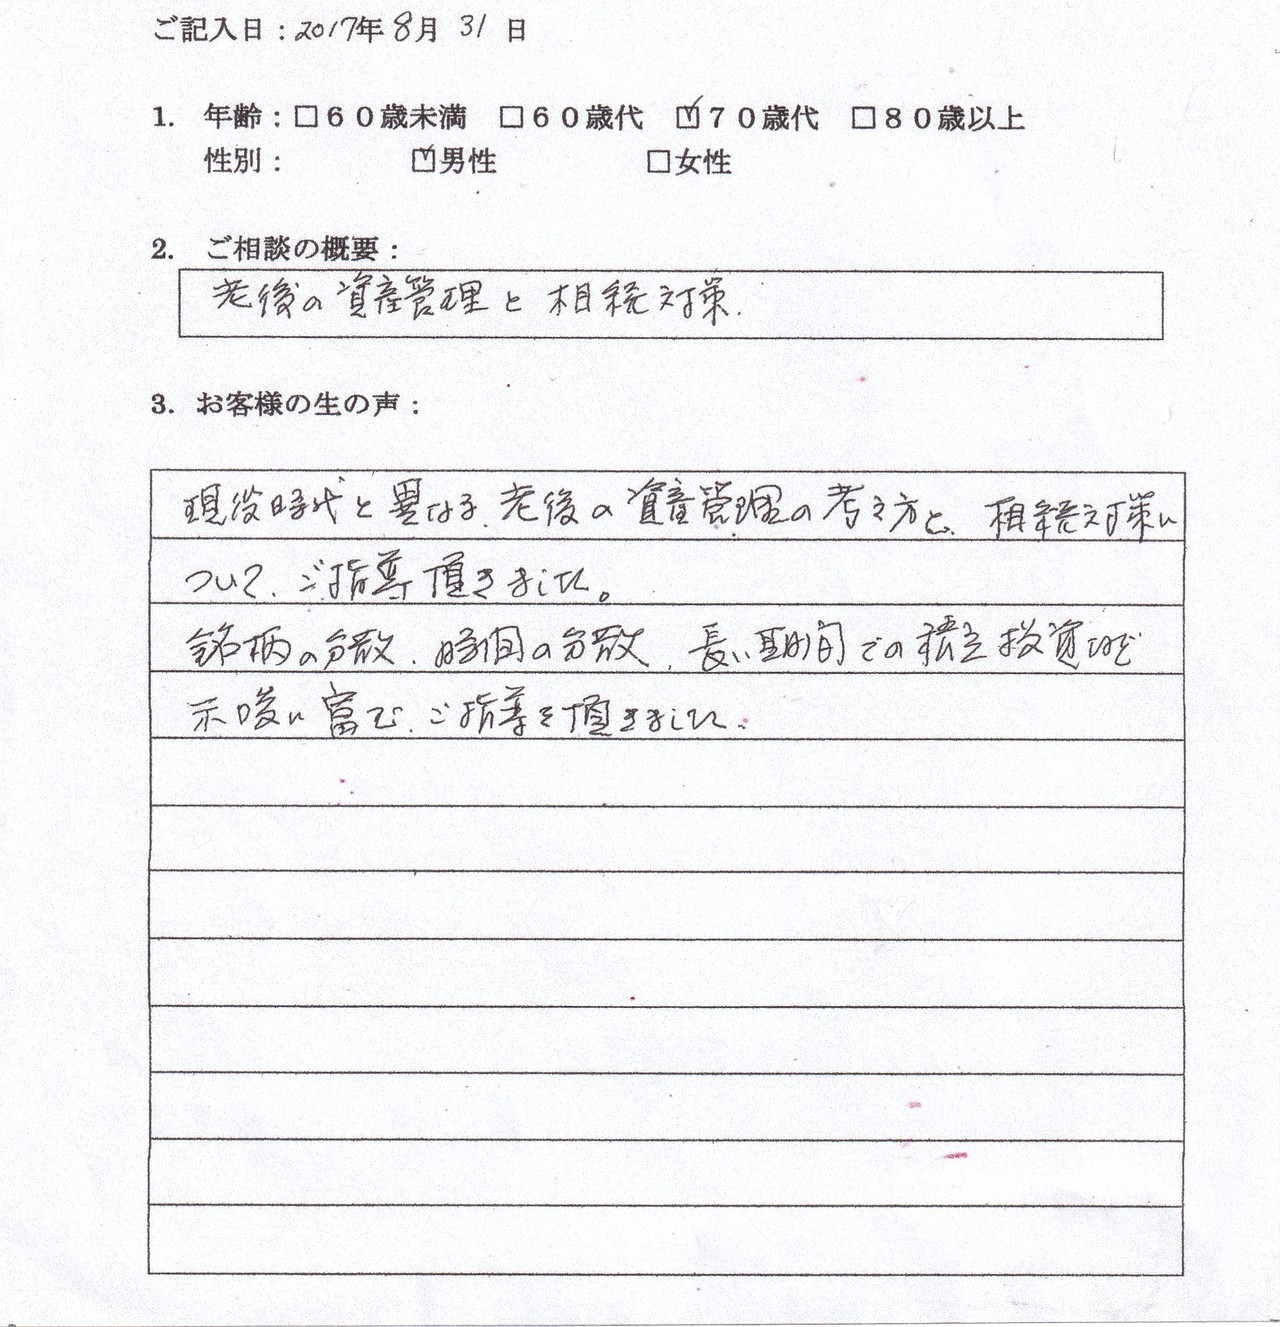 ご記入日：2017年 8月 31 日
1. 年齢：□６０歳未満 □６０歳代 ☑７０歳代 □８０歳以上
性別： ☑男性 □女性
2. ご相談の概要：
老後の資産管理と相続対策.
3. お客様の生の声：
現役時代と異なる、老後の資産管理の考え方と、相続対策に
ついて、ご指導頂きました。
銘柄の分散、時間の分散、長い期間での積立投資など
示唆に富む、ご指導を頂きました。